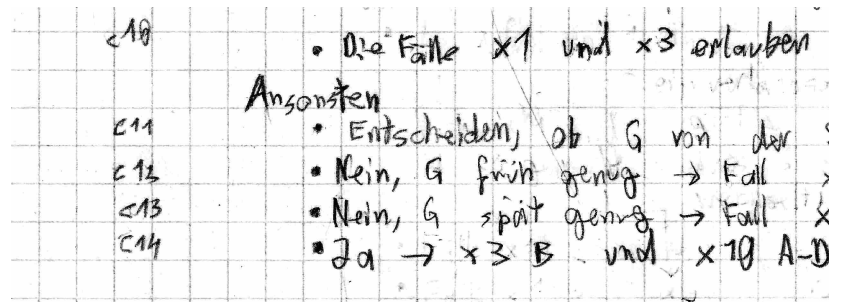 c10 • Die Fälle x1 und x3 erlauben
Ansonsten
c11 • Entscheiden, ob G von der
c12 • Nein, G früh genug → Fall
c13 • Nein, G spät genug → Fall x
c14 • Ja → x3 B und x10 A-D